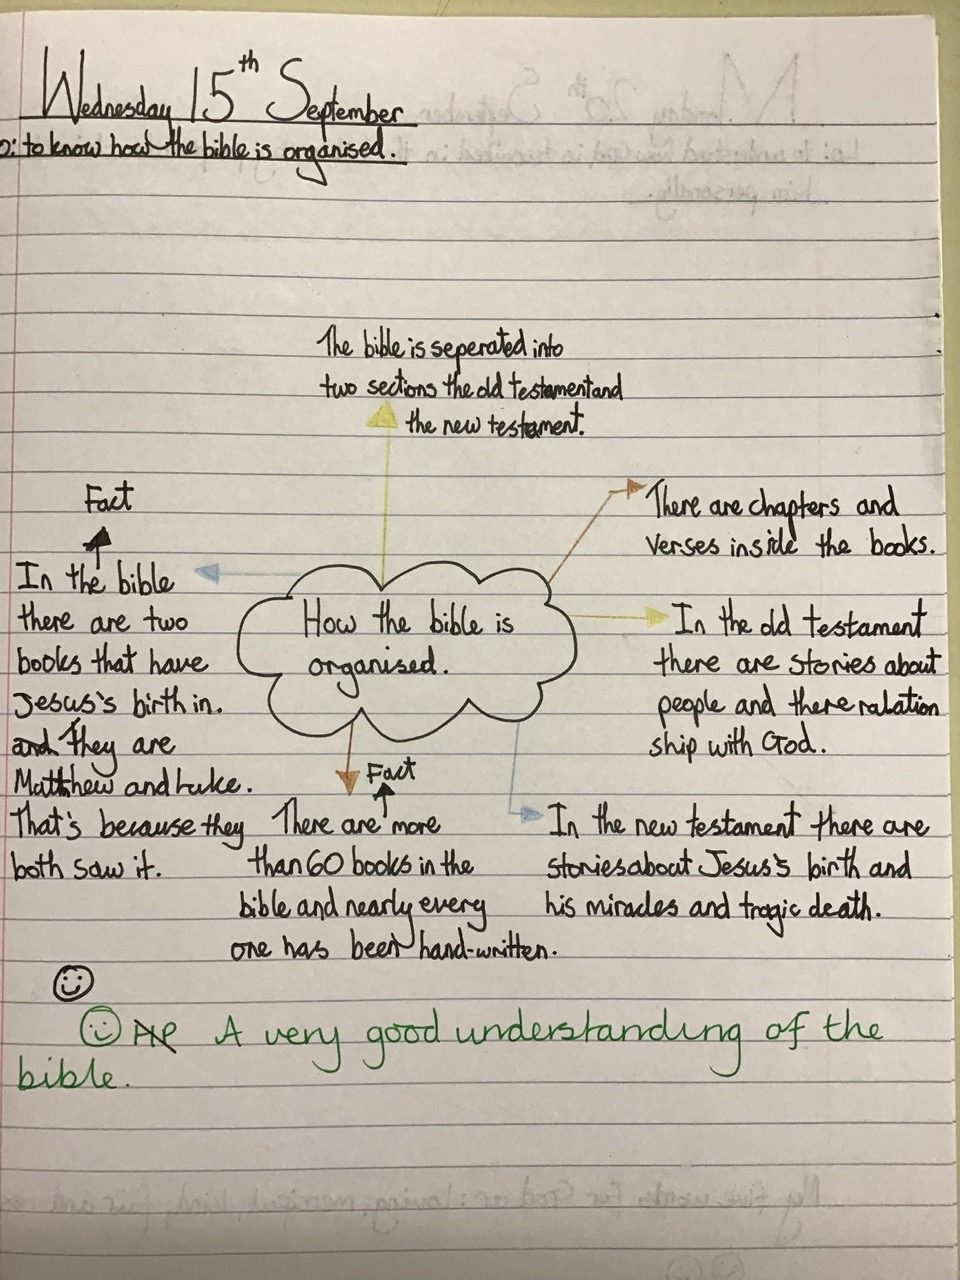 Wednesday 15th September
o: to know how the bible is organised.
The bible is seperated into
two sections the old testament and
the new testament.
Fact
In the bible
there are two
books that have
Jesus's birth in.
and They are
Matthew and Luke.
That's because they
both saw it.
There are chapters and
verses inside the books.
How the bible is
organised.
In the old testament
there are stories about
people and there ralation
ship with God.
Fact
There are more
than 60 books in the
bible and nearly every
one has been hand-written.
In the new testament there are
stories about Jesus's birth and
his miracles and tragic death.
A very good understanding of the
bible.